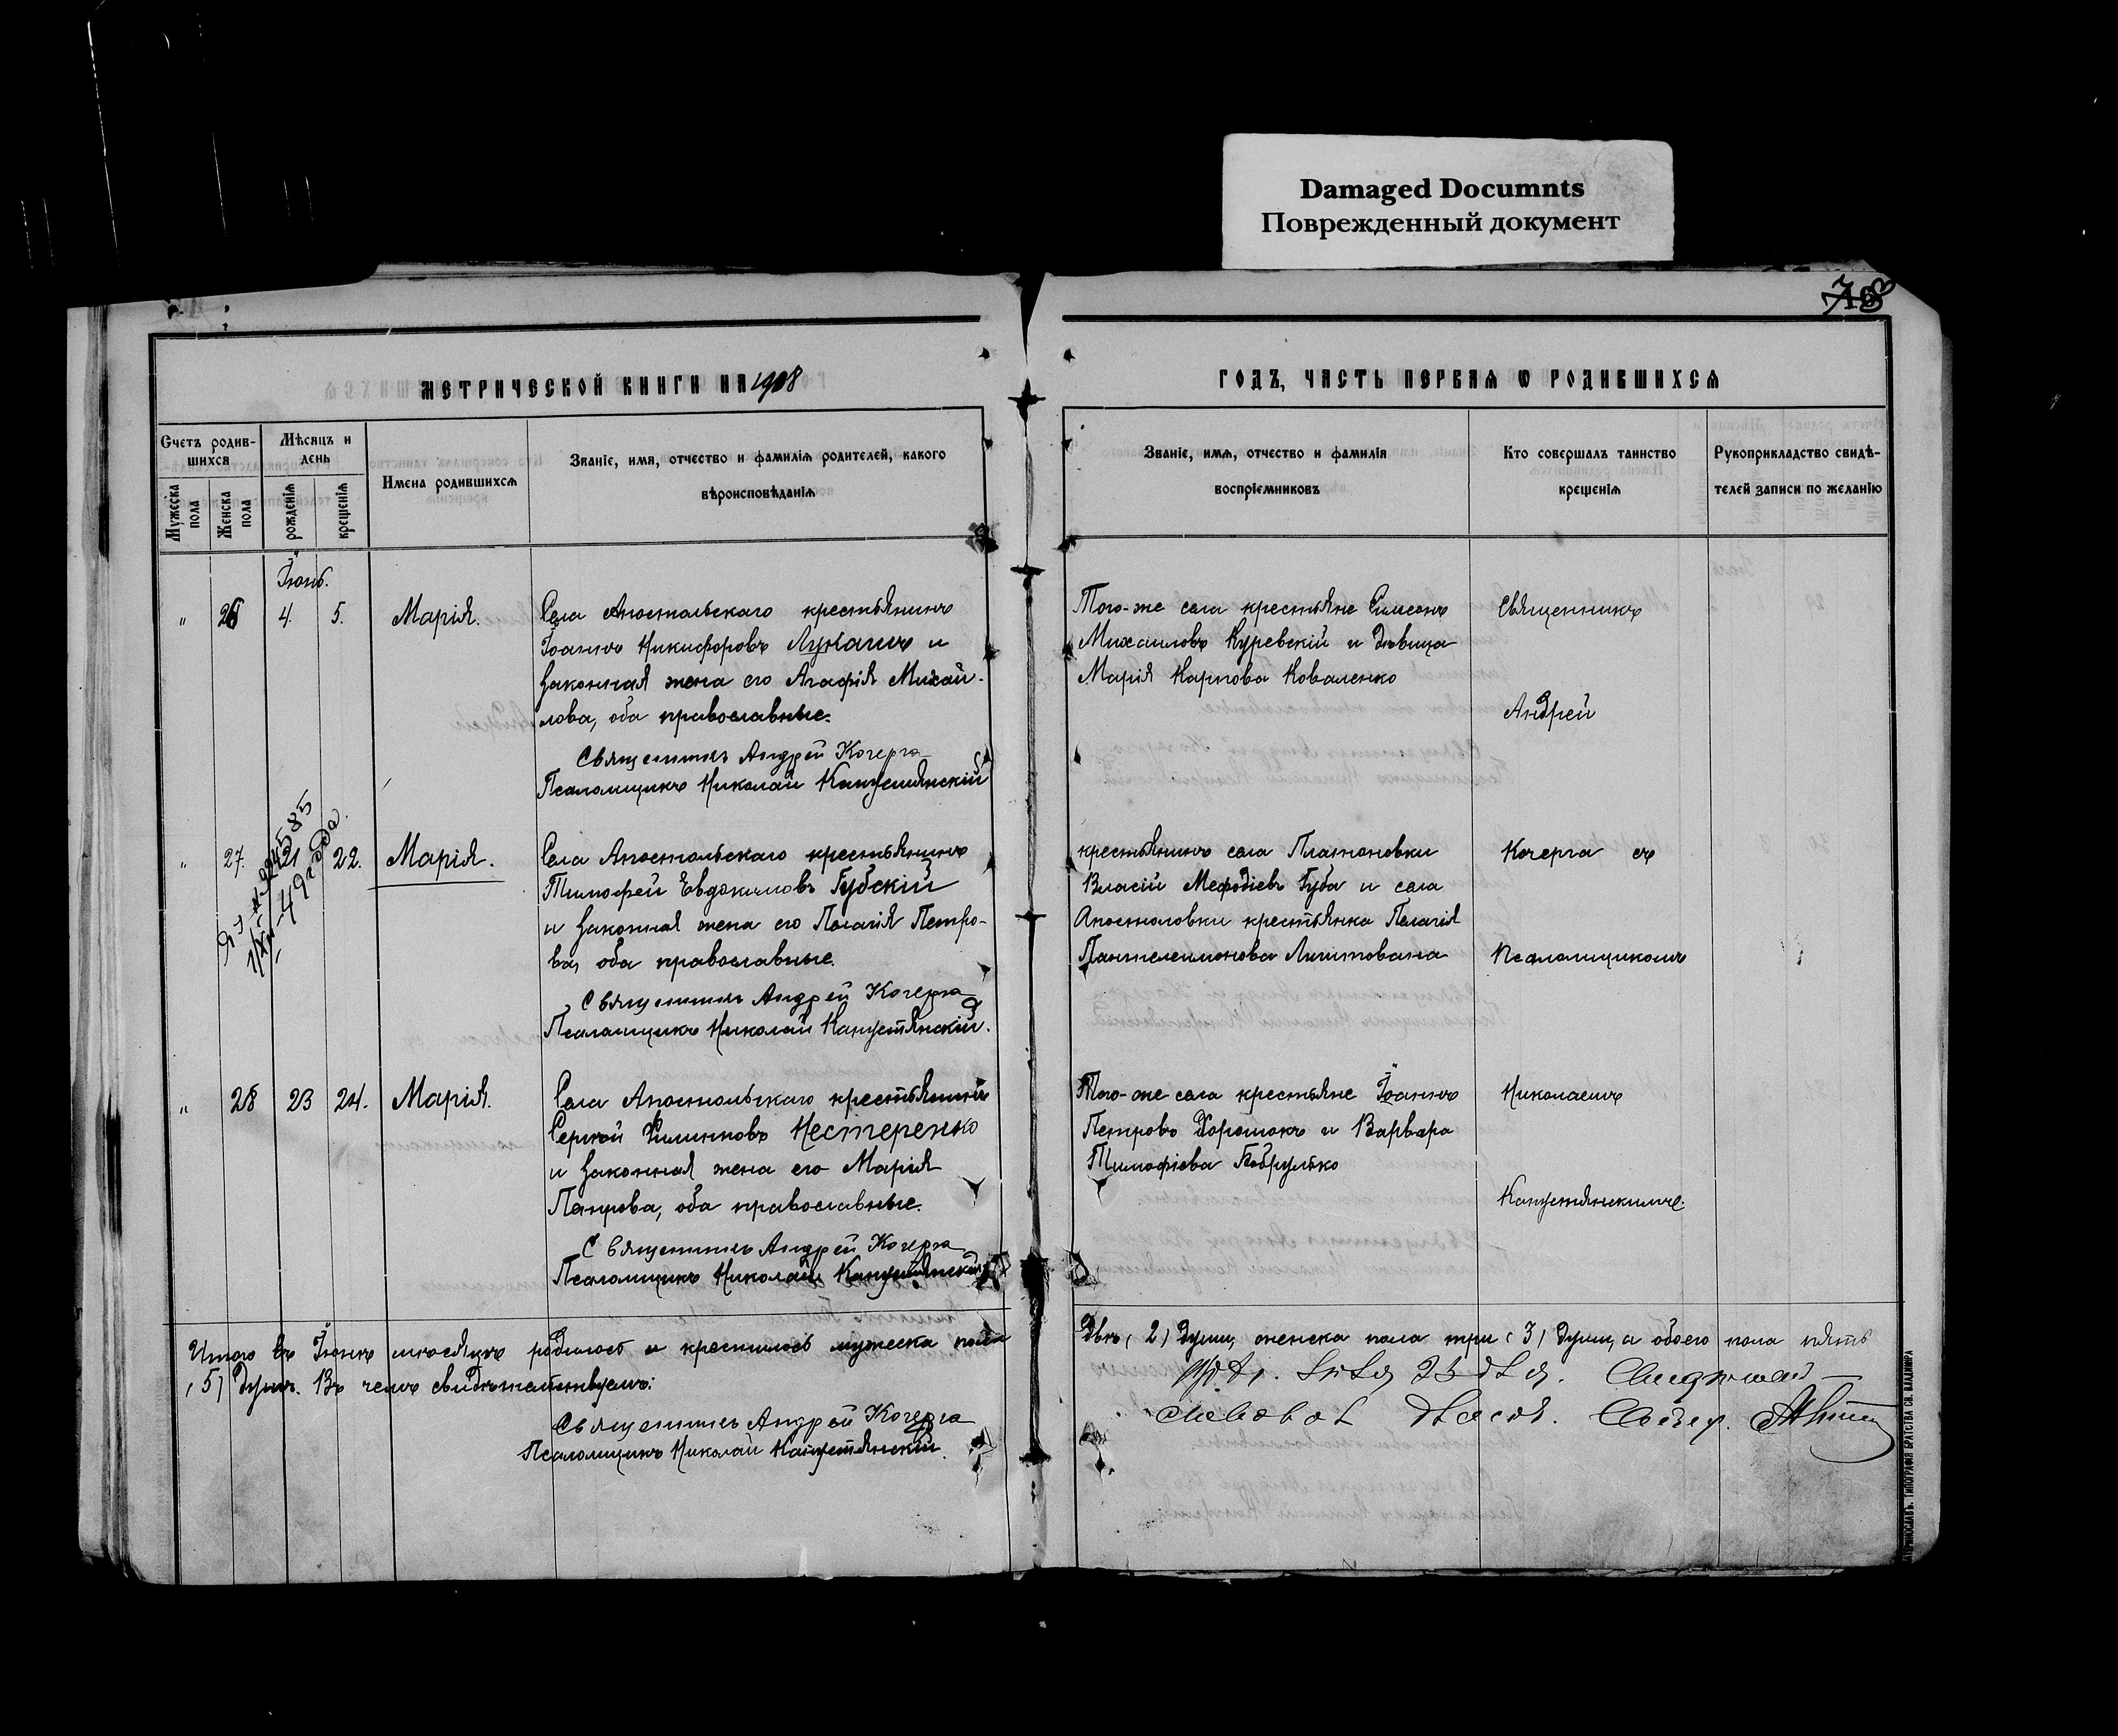 Damaged Documnts
Поврежденный документ
МЕТРИЧЕСКОЙ КНИГИ НА 1908
ГОДЪ, ЧАСТЬ ПЕРВАѦ Ѡ РОДИВШИХСѦ
Счетъ родив-
шихся
Мѣсяцъ и
день
Мужеска
пола
Женска
пола
рожденія
крещенія
Имена родившихсѧ
Званіе, имя, отчество и фамилія родителей, какого
вѣроисповѣданія
Званіе, имѧ, отчество и фамилія
воспріемниковъ
Кто совершалъ таинство
крещенія
Рукоприкладство свидѣ-
телей записи по желанію
Іюнь.
" 26 4. 5. Марія.
Села Апостольскаго крестьянинъ
Іоаннъ Никифоровъ и
законная жена его Агафія Михаи-
лова, оба православные.
Священникъ Андрей Кочерга
Псаломщикъ Николай Капустянскій
Того-же села крестьяне Симеонъ
Михаиловъ Куревскій и дѣвица
Марія Карпова Коваленко
Священникъ
Андрей
" 27. 21 22. Марія.
49 года.
Села Апостольскаго крестьянинъ
Тимофей Евдокимовъ Губскій
и законная жена его Пелагія Петро-
ва, оба православные.
Священникъ Андрей Кочерга
Псаломщикъ Николай Капустянскій.
крестьянинъ села Платоновки
Власій Мефодіевъ Губа и села
Апостоловки крестьянка Пелагія
Пантелеимонова
Кочерга съ
Псаломщикомъ
" 28 23 24. Марія.
Села Апостольскаго крестьянинъ
Сергѣй Филипповъ Нестеренко
и законная жена его Марія
Петрова, оба православные.
Священникъ Андрей Кочерга
Псаломщикъ Николай Капустянскій
Того-же села крестьяне Іоаннъ
Петровъ и Варвара
Тимофіева
Николаемъ
Капустянскимъ.
Итого въ Іюнѣ мѣсяцѣ родилось и крестилось мужеска пола
двѣ (2) души, женска пола три (3) души, а обоего пола пять
(5) душъ. Въ чемъ свидѣтельствуемъ:
Священникъ Андрей Кочерга
Псаломщикъ Николай Капустянскій.